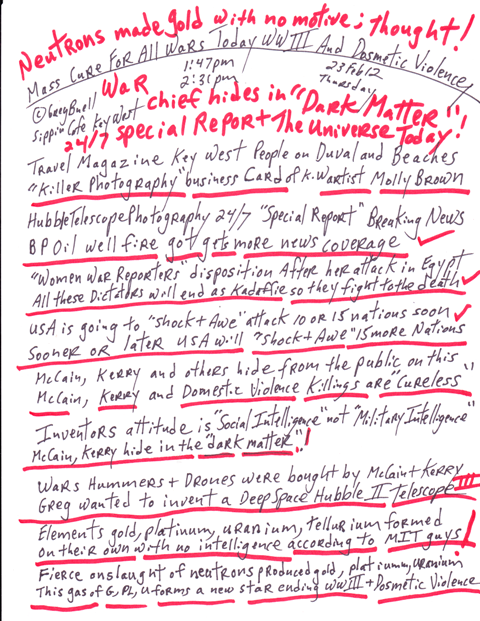 Neutrons made gold with no motive; thought!
Mass Cure For All Wars Today WWIII And Dosmetic Violence
1:47pm
2:31pm
23 Feb 12
Thursday
© GregBuell
Sippin' Cafe Key West
WaR chief hides in "Dark Matter"!
24/7 special Report The Universe Today!
Travel Magazine Key West People on Duval and Beaches
"Killer Photography" business Card of K.Wartist Molly Brown
HubbleTelescopePhotography 24/7 "Special Report" Breaking News
BP Oil well fire got gets more news coverage
"Women War Reporters" disposition After her attack in Egypt
All these Dictators will end as Kadoffie so they fight to the death
USA is going to "shock+Awe" attack 10 or 15 nations soon
Sooner or later USA will "shock+Awe" 15 more Nations
McCain, Kerry and others hide from the public on this
McCain, Kerry and Domestic Violence Killings are "Cureless"
Inventors attitude is "Social Intelligence" not "Military Intelligence"
McCain, Kerry hide in the "dark matter"!
Wars Hummers + Drones were bought by McCain + Kerry
Greg wanted to invent a Deep Space Hubble II Telescope III
Elements gold, platinum, uranium, tellurium formed
on their own with no intelligence according to MIT guys!
Fierce onslaught of neutrons produced gold, platiumm, uranium
This gas of G, PL, U forms a new star ending WWIII + Dosmetic Violence